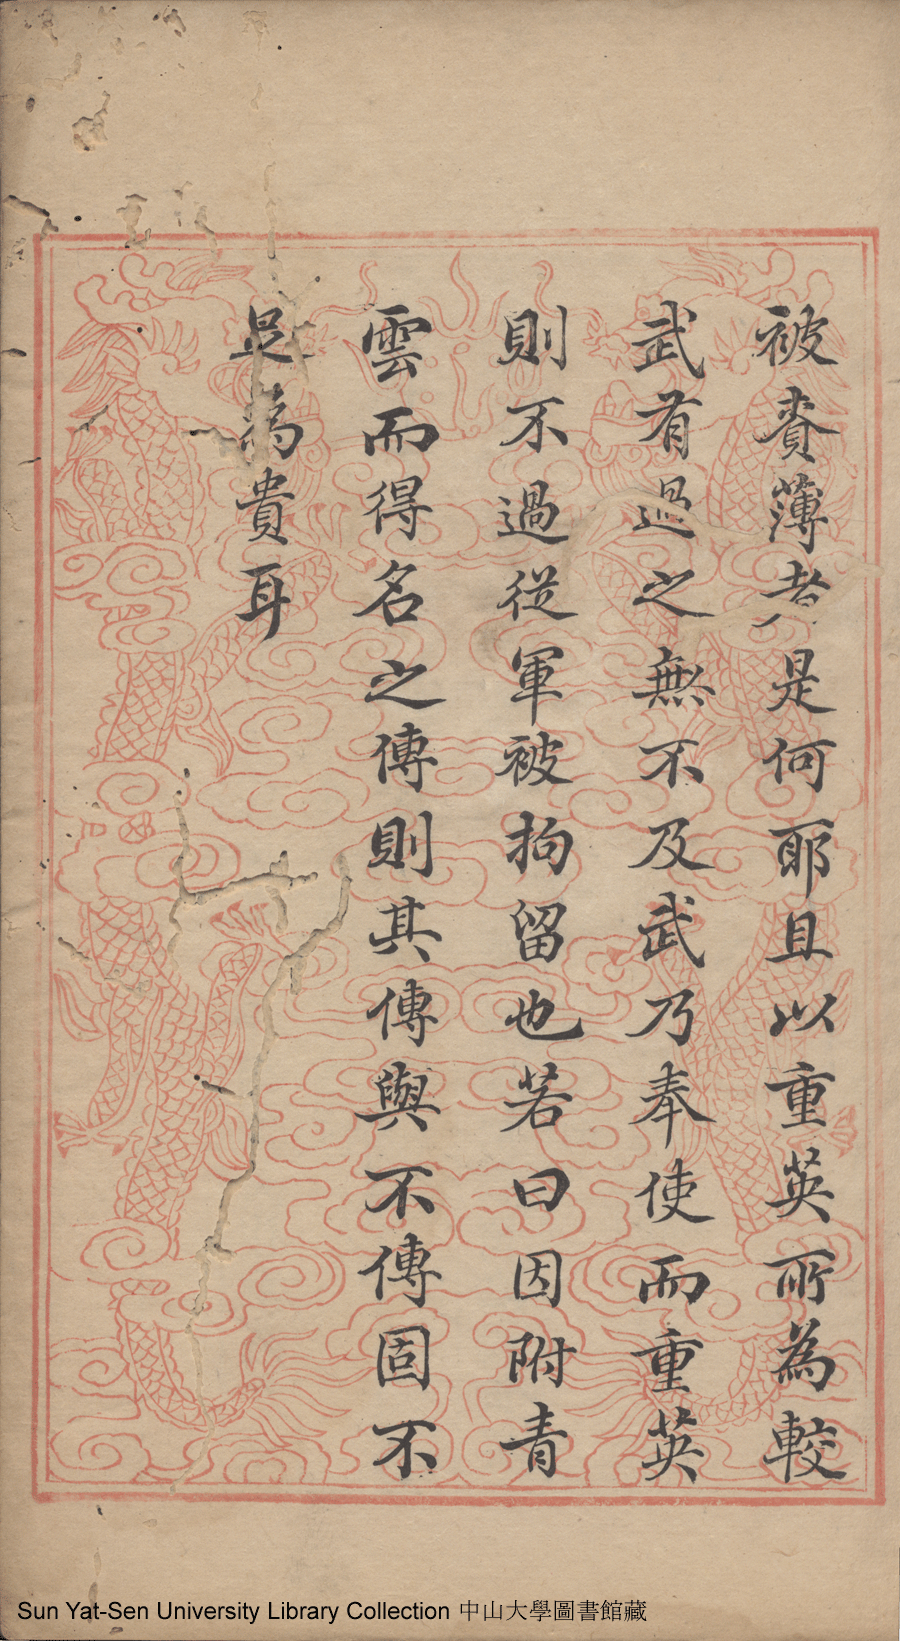 被賚薄者是何耶且以重英所為較
武有過之無不及武乃奉使而重英
則不過從軍被拘留也若曰因附青
雲而得名之傳則其傳與不傳固不
足為貴耳
Sun Yat-Sen University Library Collection 中山大學圖書館藏